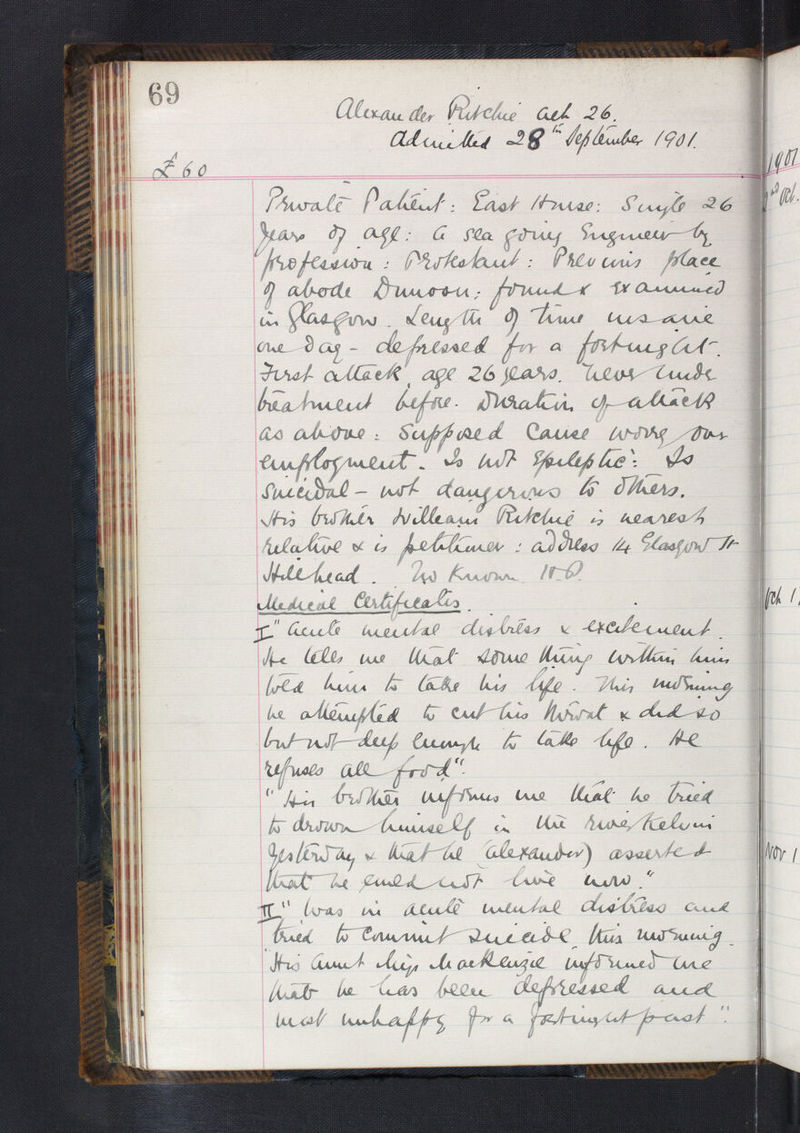 69
Alexander Ritchie aet 26.
Admitted 28th September 1901.
£60
Private Patient: East House: Single 26
years of age: a sea going Engineer by
profession: Protestant: Previous place
of abode Dunoon: found & examined
in Glasgow. Length of time insane
one day - depressed for a fortnight.
First attack, age 26 years. Never under
treatment before. Duration of attack
as above: Supposed Cause worry over
employment. Is not Epileptic: Is
Suicidal - not dangerous to others.
His brother William Ritchie is nearest
relative & is petitioner: address 14 Glasgow St
Hillhead. No Known H.P.
Medical Certificates.
I "Acute mental distress & excitement.
He tells me that something within him
told him to take his life. This morning
he attempted to cut his throat & did so
but not deep enough to take life. He
refuses all food".
"His brother informs me that he tried
to drown himself in the river Kelvin
yesterday & that he (Alexander) asserted
that he could not live now."
II "Was in acute mental distress and
tried to commit suicide this morning.
His Aunt Miss MacKenzie informed me
that he has been depressed and
most unhappy for a fortnight past".
1901
2nd Oct.
Oct 1
Nov 1